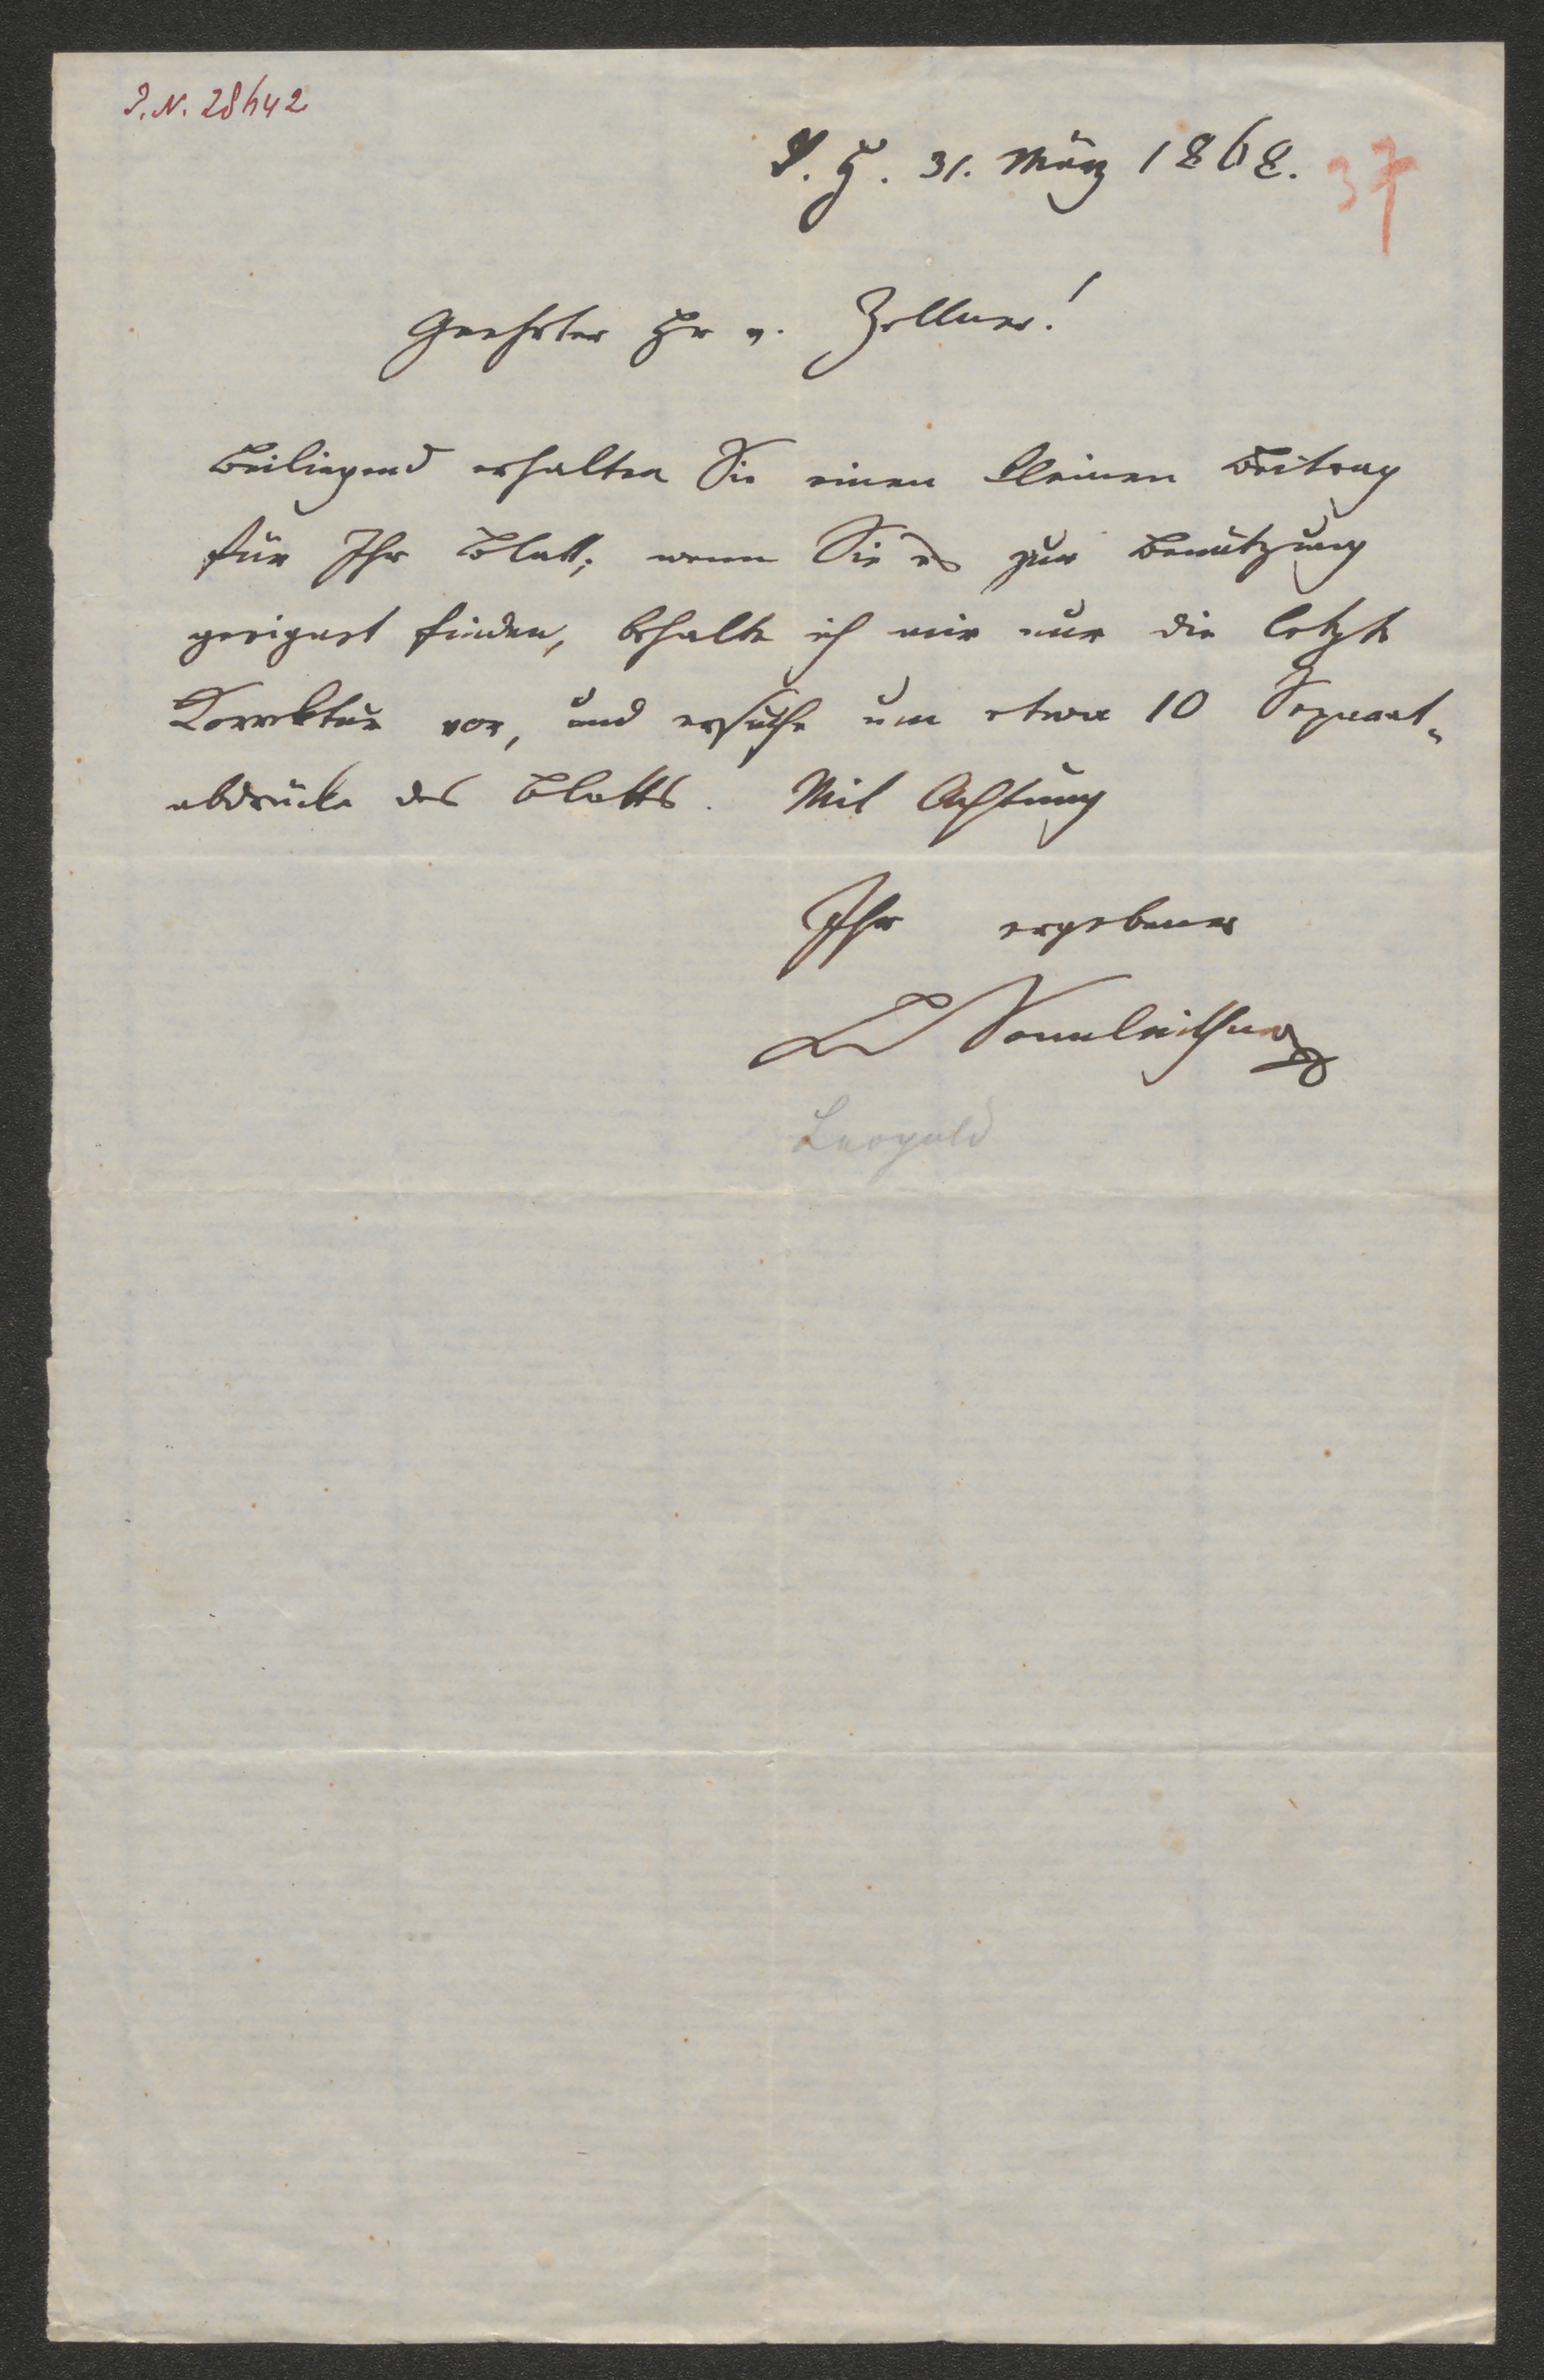 I.N. 28642
S. H. 31. März 1868.
37
Geehrter Hr v. Zellner!
Beiliegend erhalten Sie einen kleinen Beitrag
für Ihr Blatt; wenn Sie es zur Benützung
geeignet finden, behalte ich mir nur die letzte
Korrektur vor, und ersuche um etwa 10 Separat-
abdrücke des Blatts. Mit Achtung
Ihr ergebener
L Sonnleithner
Leopold